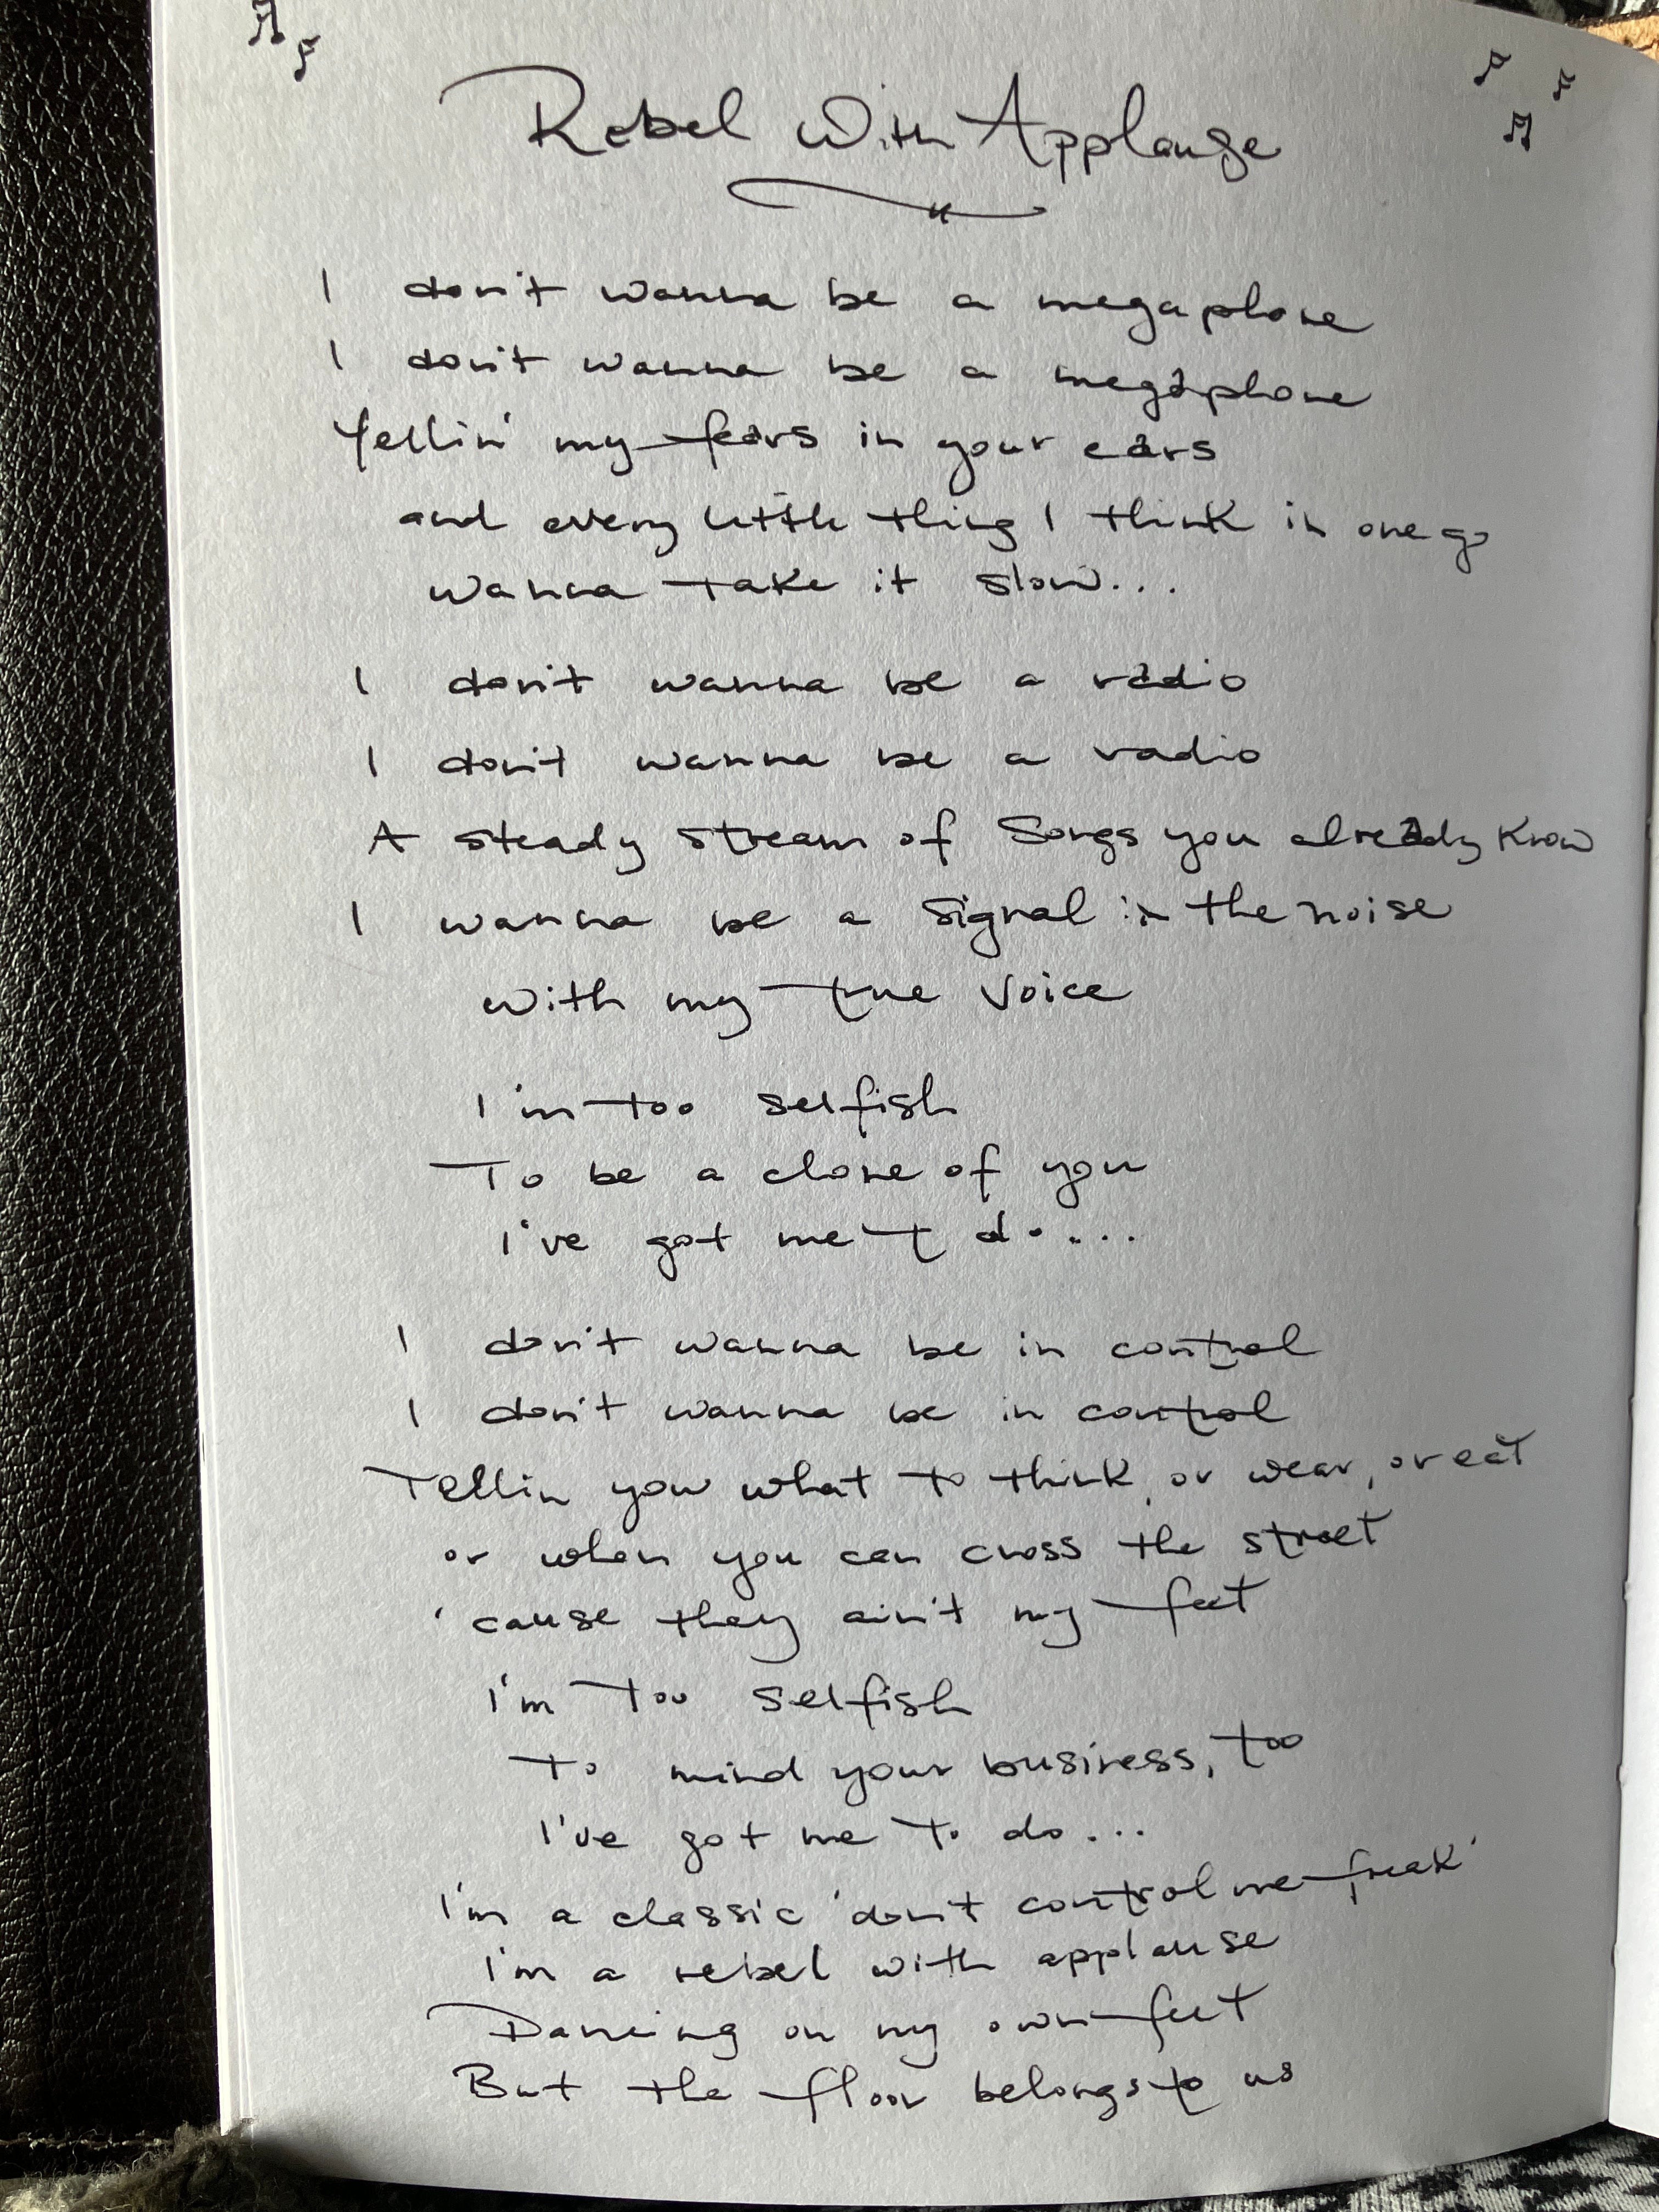 Rebel With Applause
I don't wanna be a megaphone
I don't wanna be a megaphone
Yellin' my fears in your ears
and every little thing I think in one go
wanna take it slow...
I don't wanna be a radio
I don't wanna be a radio
A steady stream of songs you already know
I wanna be a signal in the noise
with my true voice
I'm too selfish
To be a clone of you
I've got me to do...
I don't wanna be in control
I don't wanna be in control
Tellin you what to think, or wear, or eat
or when you can cross the street
'cause they ain't my feet
I'm too selfish
To mind your business, too
I've got me to do...
I'm a classic 'don't control me freak'
I'm a rebel with applause
Dancing on my own feet
But the floor belongs to us